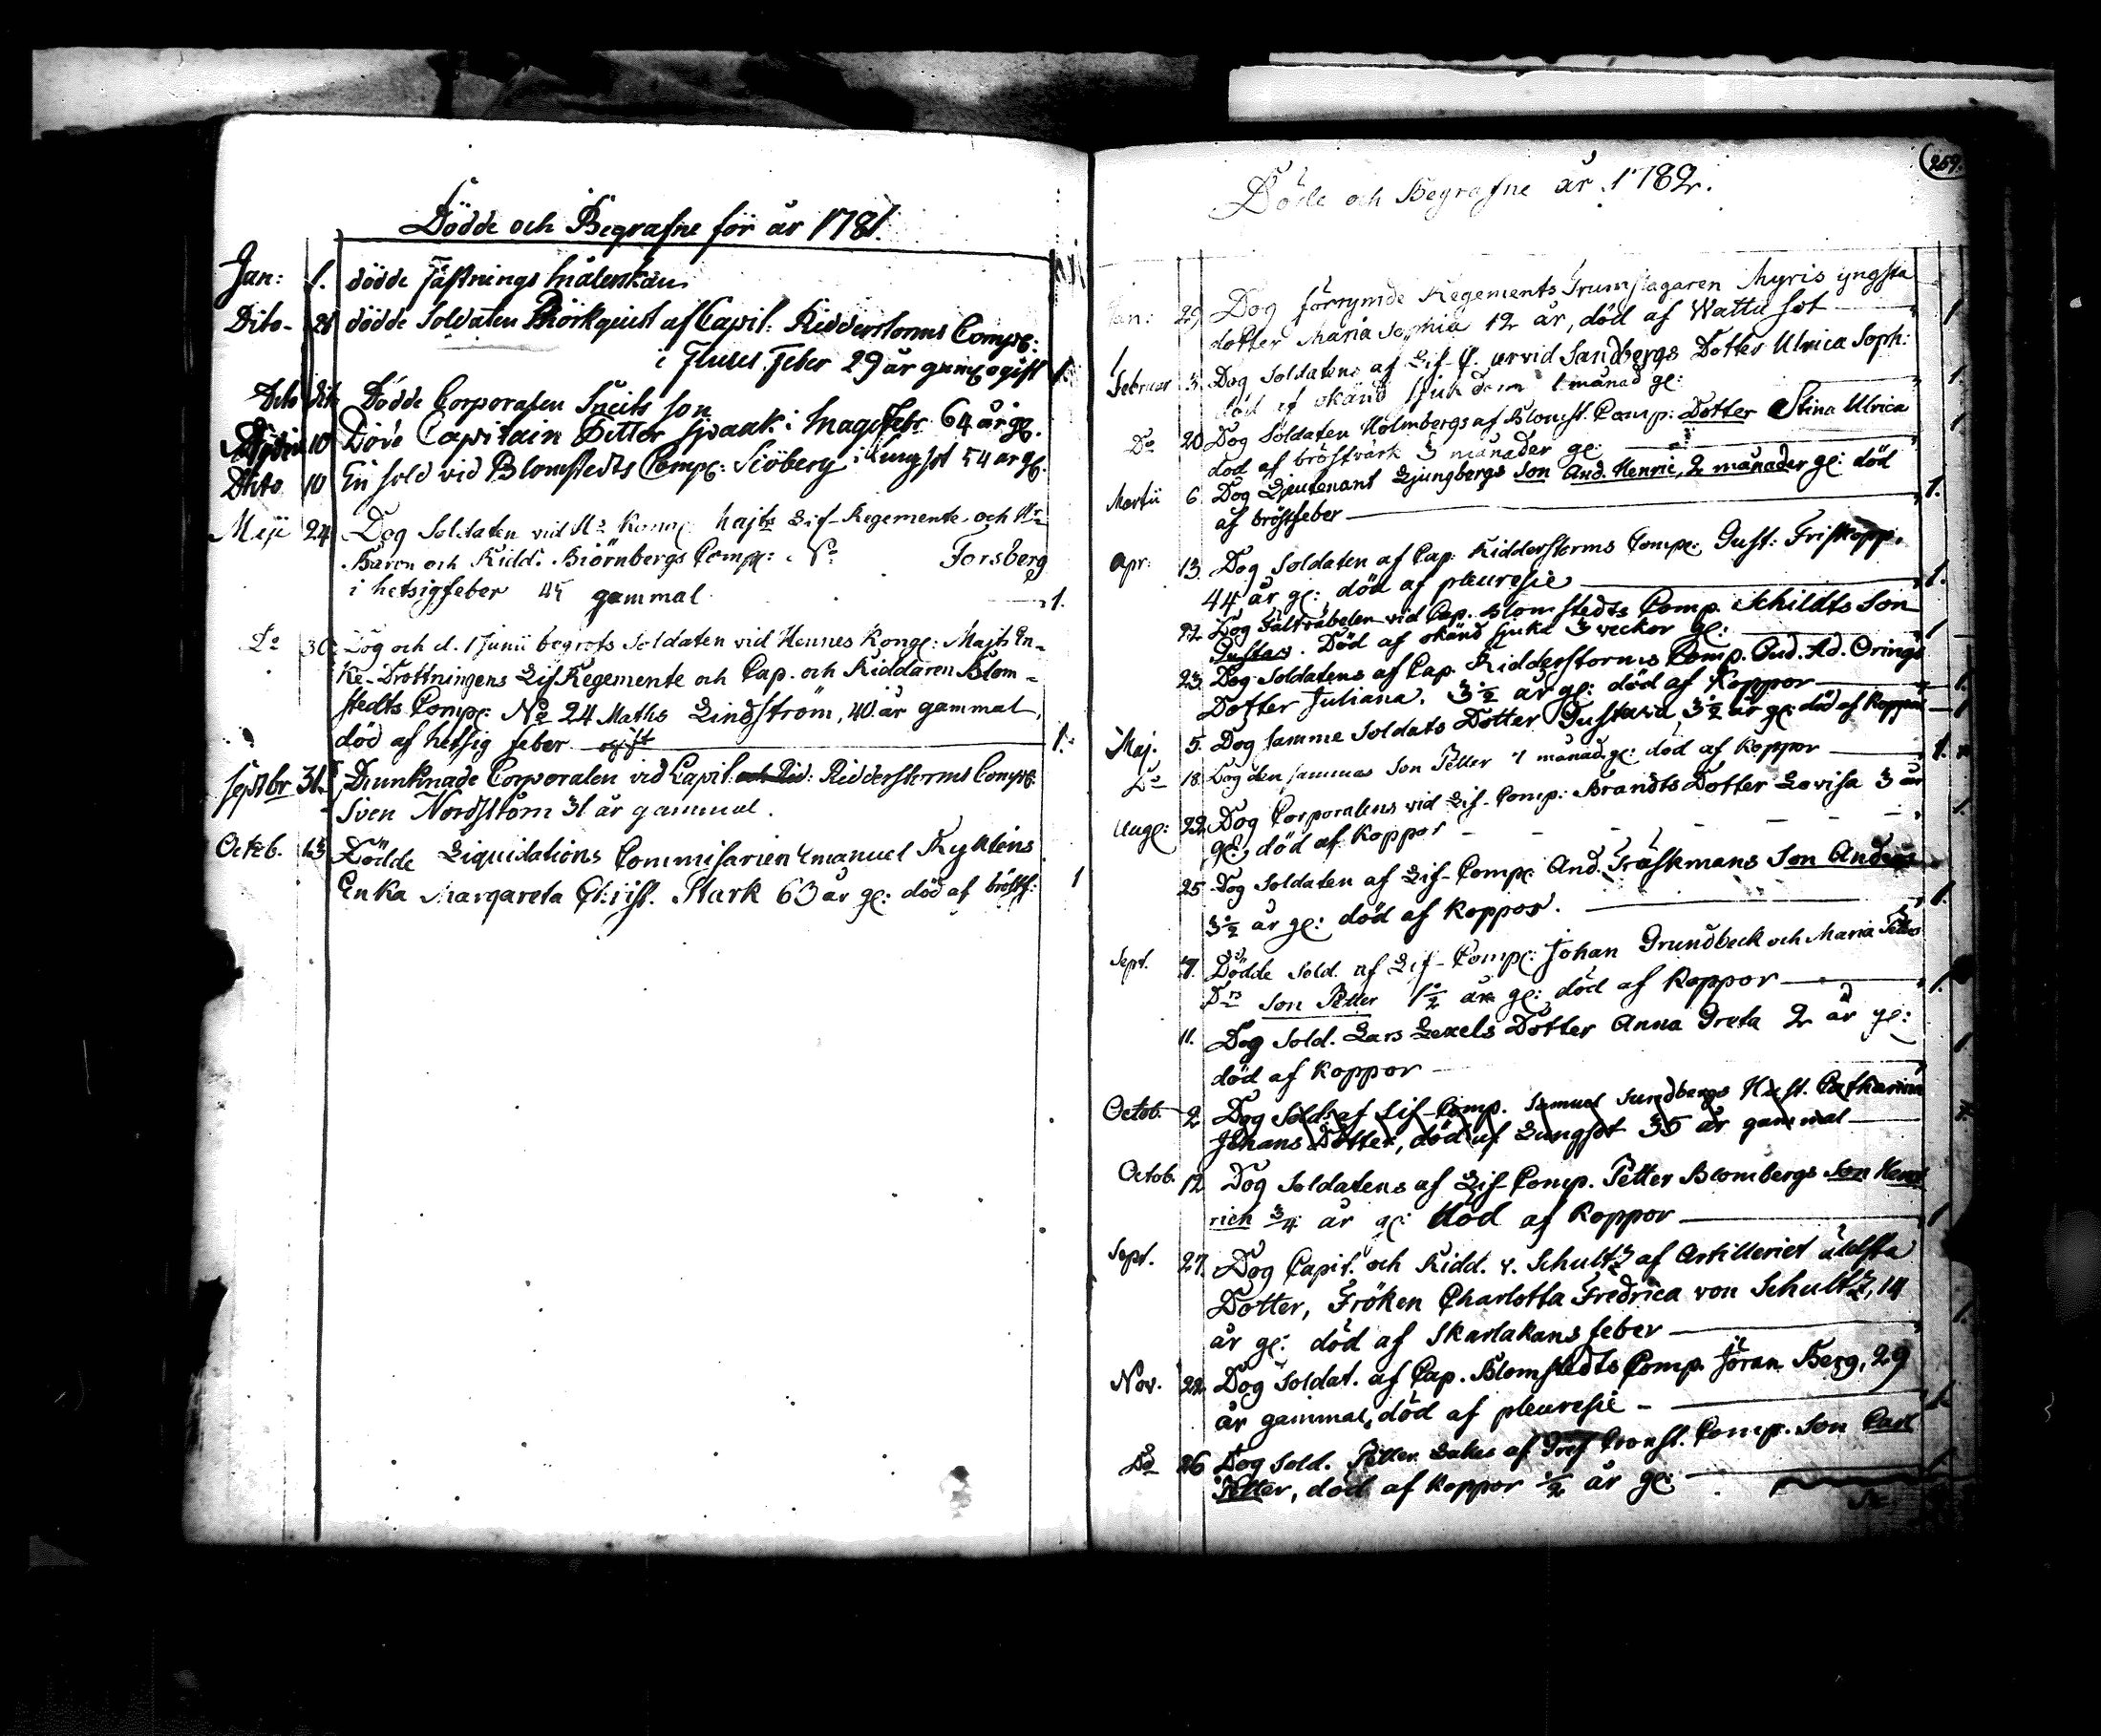 Dödde och Begrafne för år 1781.
Jan: 1. dödde Fästnings
Dito - 28 dödde Soldaten Biörkquist af Capit: Ridderstorms Comp:
i Feber 29 år gaml ogift 1.
Dito dito Dödde Corporalen son
10 Döde Capitain Petter i Febr 64 år gl.
Dito 10 En sold vid Blomstedts Comp: Siöberg i Lungsot 54 år gl.
Maji 24 Dog Soldaten vid Kongl. Majts Lif-Regemente och
Baron och Ridd. Biörnbergs Comp: No Forsberg
i hetsigfeber 45 gammal 1.
Do 30 Dog och d. 1 Junii begrofs Soldaten vid Hennes Kongl: Majts En-
ke-Drottningens Lif Regemente och Cap. och Riddaren Blom-
stedts Comp: No 24 Maths Lindström, 40 år gammal,
död af hetsig feber ogift 1.
Septbr 31. Drunknade Corporalen vid Capit: och Rid: Ridderstorms Comp:
Sven Nordström 31 år gammal.
Octob. 13 Dödde Liquidations Commisarien Emanuel
Enka Margareta Christ. Stark 63 år gl: död af bröstf: 1
259.
Döde och Begrafne år 1782.
Jan: 29 Dog förrymde Regements Trumslagaren Myris yngsta
dotter Maria Sophia 12 år, död af Wattu sot 1
Februar 3. Dog Soldatens af Lif-C. arvid Sandbergs Dotter Ulrica Soph:
död af okänd sjukdom 1 månad gl: 1.
Do 20 Dog Soldaten Holmbergs af Blomst. Comp: Dotter Stina Ulrica
död af bröstvärk 3 månader gl: 1
Martii 6. Dog Lieutenant Ljungbergs Son And. Henric, 2 månader gl: död
af bröstfeber 1.
Apr: 13. Dog Soldaten af Cap: Ridderstorms Comp: Gust: Friskopp,
44 år gl: död af pleuresie 1.
22. Dog Fältväbelen vid Cap. Blomstedts Comp. Schildts Son
Gustav. Död af okänd sjuka 3 veckor gl: 1
23. Dog Soldatens af Cap. Ridderstorms Comp. And. Ad. Örings
Dotter Juliana. 3 1/2 år gl: död af Koppor 1.
Maj. 5. Dog samme Soldats Dotter Gustava, 3 1/2 år gl: död af Koppor 1
Do 18. Dog den sammas Son Petter 4 månad. gl: död af Koppor 1.
Aug: 22. Dog Corporalens vid Lif-Comp: Brandts Dotter Lovisa 3 år
gl: död af Koppor 1.
25. Dog Soldaten af Lif-Comp: And. Träskmans Son Anders
3 1/2 år gl: död af Koppor. 1.
Sept. 7. Dödde Sold. af Lif-Comp: Johan Grundbeck och Maria Petters
Drs Son Petter 1 1/2 år gl: död af Koppor 1.
11. Dog Sold. Lars Lexels Dotter Anna Greta 2 år gl:
död af Koppor 1
Octob. 2 Dog Sold: af Lif-Comp. Samuel Sundbergs Hust. Catharina
Johans Dotter, död af Lungsot 35 år gammal
Octob. 12 Dog Soldatens af Lif-Comp. Petter Blombergs Son Hen
rich 3/4 år gl: död af Koppor 1
Sept. 27. Dog Capit. och Ridd. v. Schultz af Artilleriet äldsta
Dotter, Fröken Charlotta Fredrica von Schultz, 14
år gl: död af Skarlakans feber 1.
Nov. 22. Dog Soldat. af Cap. Blomstedts Comp. Jöran Berg, 29
år gammal, död af pleuresie 1.
Do 26 Dog Sold. Petter af Gref Cronst. Comp. Son Carl
Petter, död af Koppor 1/2 år gl: 1